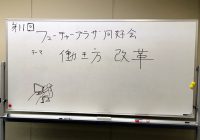 第11回
フューチャープラザ同好会
テーマ
働き方 改革